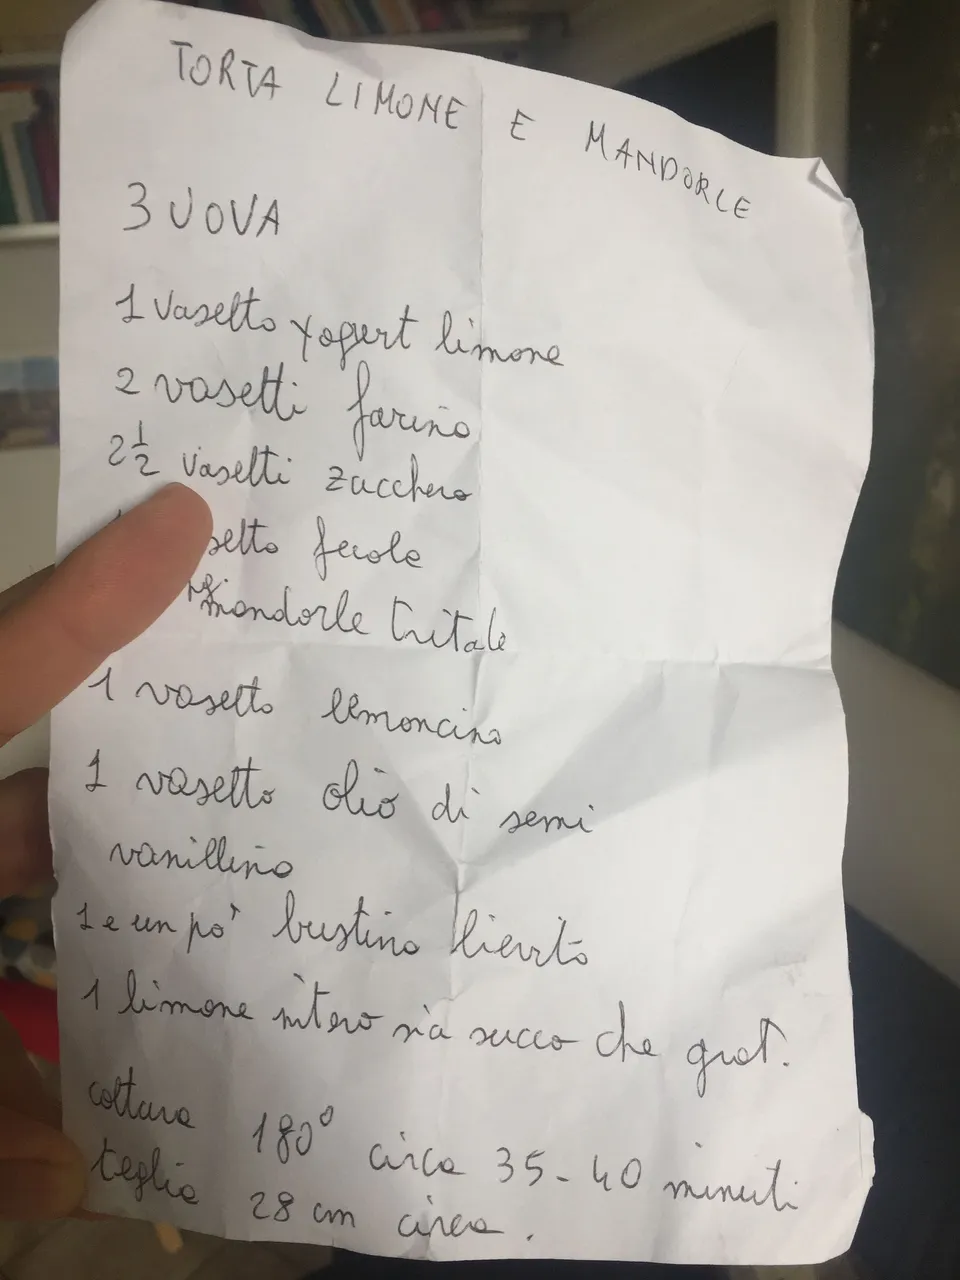 TORTA LIMONE E MANDORLE
3 UOVA
1 vasetto yogurt limone
2 vasetti farina
2 1/2 vasetti zucchero
setto fecola
mandorle tritate
1 vasetto lemoncino
1 vasetto olio di semi
vanillina
1 e un po' bustina lievito
1 limone intero sia succo che grat.
cottura 180° circa 35-40 minuti
teglia 28 cm circa.